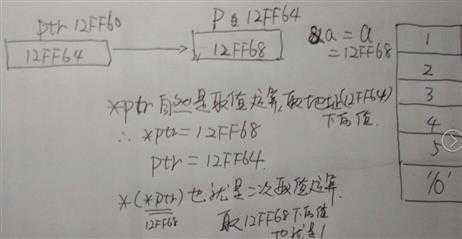 ptr 12FF60
12FF64
P 12FF64
12FF68
&a = a
= 12FF68
1
2
3
4
5
'\0'
*ptr 自然是取值运算,取地址(12FF64)
下的值.
∴ *ptr = 12FF68
ptr = 12FF64.
*(*ptr) 也就是二次取值运算.
12FF68
取12FF68下的值
也就是1